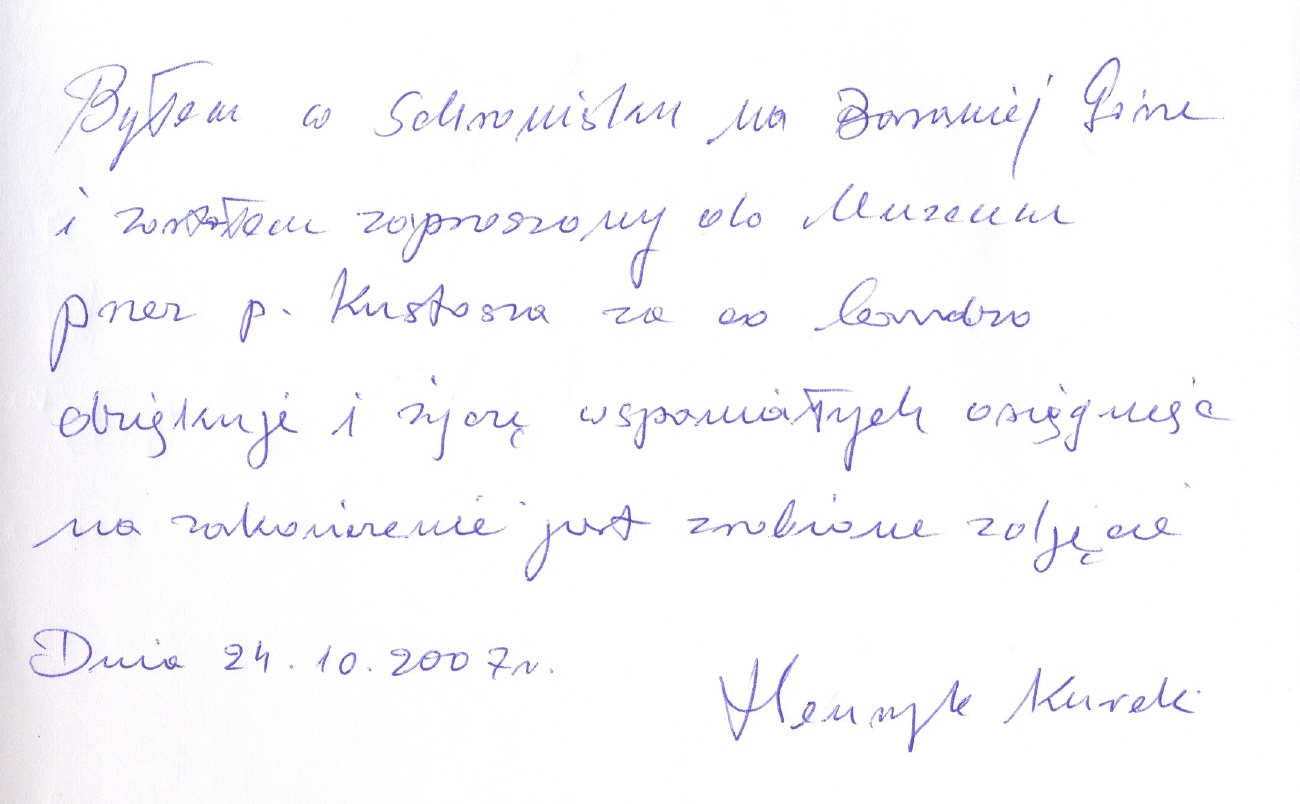 Byłem w Schronisku na Baraniej Górze
i zostałem zaproszony do Muzeum
przez p. Kustosza za co bardzo
dziękuje i życzę wspaniałych osięgnięć
na zakończenie jest zrobione zdjęcie
Dnia 24.10.2007r.
Henryk Kurek